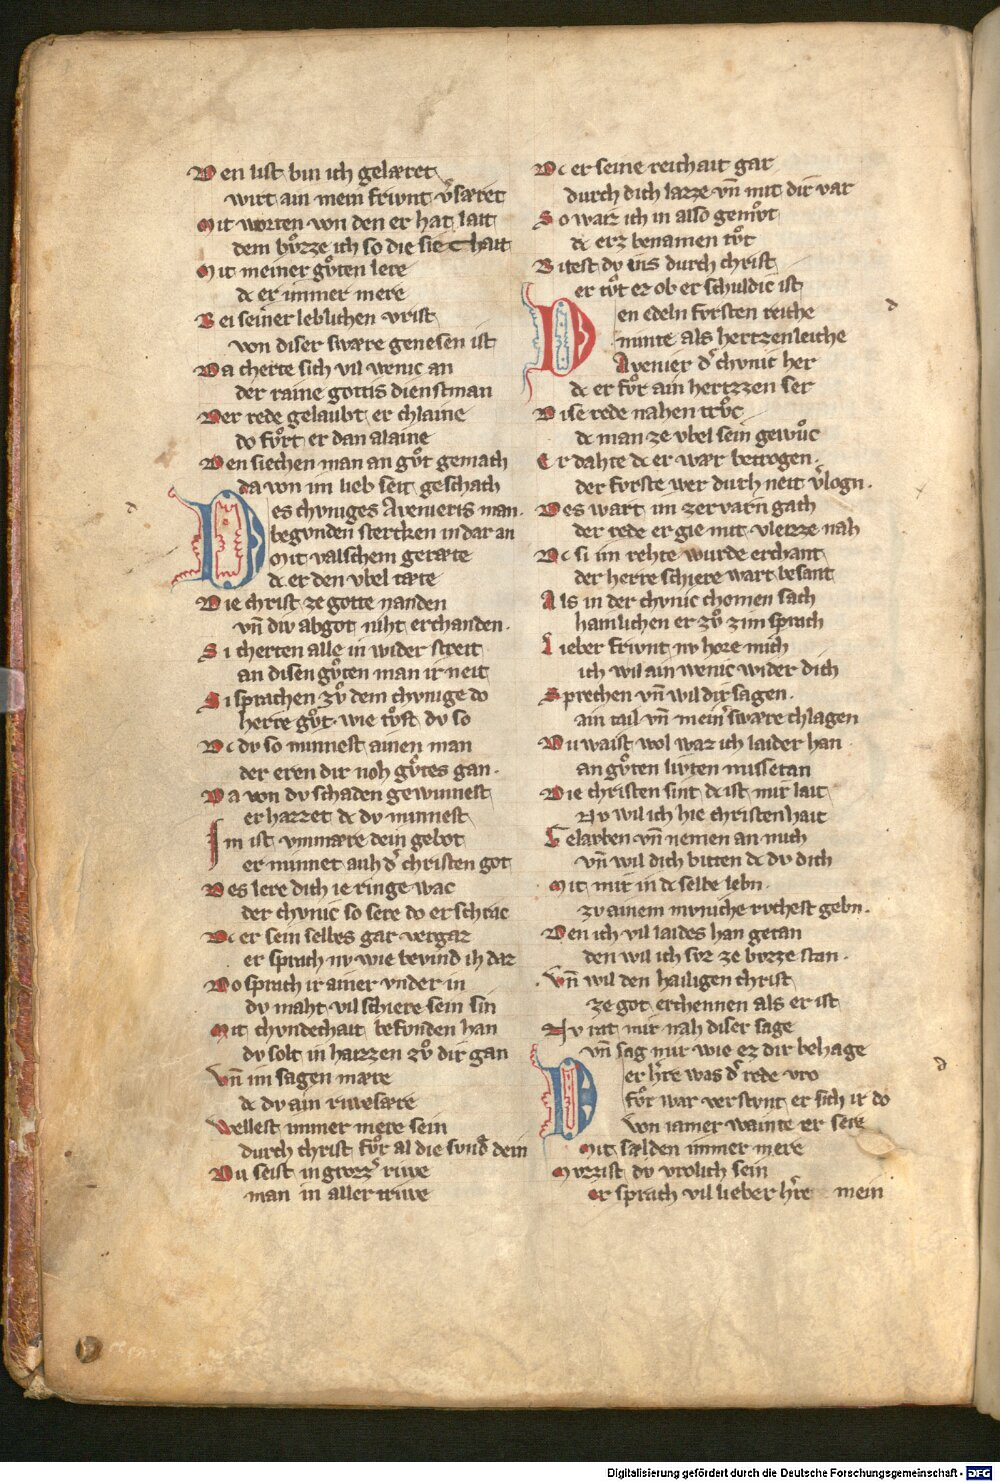 Den list bin ich gelæret
wirt ain mein friwnt v̓særet
Mit worten von den er hat lait
dem bůzze ich so die siechait
Mit meiner gůten lere
dc er immer mere
Bei seiner leblichen vrist
von diser swære genesen ist
Da cherte sich vil wenic an
der raine gottis dienstman
Der rede gelaubt er chlaine
do fůrt er dan alaine
Den siechen man an gůt gemach
da von im lieb seit geschach
Des chvniges Avenieris man
begvnden stercken in dar an
Mit valschem geræte
dc er den vbel tæte
Die christ ze gotte nanden
vn̄ div abgot niht erchanden
Si cherten alle in wider streit
an disen gůten man ir neit
Si sprachen zů dem chvnige do
herre gůt wie tůst dv so
Dc dv so minnest ainen man
der eren dir noh gůtes gan
Da von dv schaden gewinnest
er hazzet dc dv minnest
Im ist vnmære dein gebot
er minnet auh d̓ christen got
Des lere dich ie ringe wac
der chvnic so sere do erschrac
Dc er sein selbes gar vergaz
er sprach nv wie bevind ih daz
Do sprach ir ainer vnder in
dv maht vil schiere sein sin
Mit chvndechait befvnden han
dv solt in haizzen zů dir gan
Vn̄ im sagen mære
dc dv ain riwesære
Wellest immer mere sein
durch christ fůr al die svnd̓ dein
Du seist in grozz̓ riwe
man in aller triwe
Dc er seine reichait gar
durch dich lazze vn̄ mit dir var
So waiz ich in also gemůt
dc erz benamen tůt
Bitest dv vis durch christ
er tůt ez ob er schuldic ist
Den edeln fvrsten reiche
minte als hertzenleiche
Avenier d̓ chvnic her
dc er fůr ain hertzzen ser
Dise rede nahen trůc
dc man ze vbel sein gewůc
Er dahte dc er wær betrogen
der fvrste wer durh neit v̓logn
Des wart im zervarn gach
der rede er gie mit vleizze nah
Dc si im rehte wurde erchant
der herre schiere wart besant
Als in der chvnic chomen sach
haimlichen er zů zim sprach
Lieber friwnt nv hore mich
ich wil ain wenic wider dich
Sprechen vn̄ wil dir sagen
ain tail vn̄ mein̓ swære chlagen
Du waist wol waz ich laider han
an gůten livten missetan
Die christen sint dc ist mir lait
Nv wil ich hie christenhait
Gelavben vn̄ nemen an mich
vn̄ wil dich bitten dc dv dich
Mit mir in dc selbe lebn
zv ainem mvniche rvchest gebn
Den ich vil laides han getan
den wil ich fvr ze bvzze stan
Vn̄ wil den hailigen christ
ze got erchennen als er ist
Nv rat mir nah diser sage
vn̄ sag mir wie ez dir behage
Der h̓re was d̓ rede vro
fůr war verstvnt er sich ir do
Von iamer wainte er sere
Mit sælden immer mere
Mvzzist dv vrolich sein
er sprach vil lieber h̓re mein
Digitalisierung gefördert durch die Deutsche Forschungsgemeinschaft - DFG